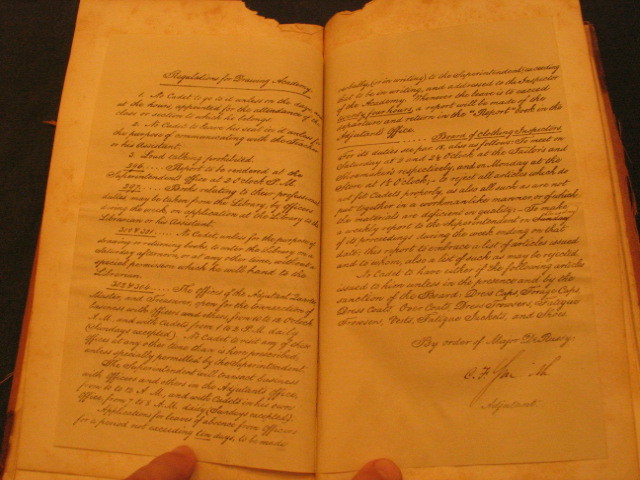 Regulations for Drawing Academy.
1. No Cadet to go to it unless on the days and
at the hours, appointed for the attendance of the
class or section to which he belongs.
2. No Cadet to leave his seat in it unless for
the purpose of communicating with the Teacher
or his Assistant.
3. Loud talking prohibited.
Report to be rendered at the
Superintendent's office at 2 o'clock P.M.
Books relating to their professional
duties may be taken from the Library, by Officers
every day in the week, on application at the Library to the
Librarian or his Assistant.
No Cadet, unless for the purpose of
drawing or returning books, to enter the Library on a
saturday afternoon, or at any other time, without a
special permission which he will hand to the
Librarian.
The Offices of the Adjutant, Quarter
Master, and Treasurer, open for the transaction of
business with Officers and others, from to 12 o'clock
A.M. and with Cadets from 1 to 2 P.M. daily
(Sundays excepted). No Cadet to visit any of these
Offices at any other time than is here prescribed,
unless specially permitted by the Superintendent.
The Superintendent will transact business
with Officers and others in the Adjutant's Office,
from to 10 A.M., and with Cadets in his own
Office, from 7 to 8 A.M. daily (Sundays excepted).
Applications for leaves of absence from Officers
for a period not exceeding ten days, to be made
verbally, (or in writing), to the Superintendent; exceeding
that to be in writing, and addressed to the Inspector
of the Academy. Whenever the leave is to exceed
twenty four hours, a report will be made of the
departure and return in the "Report" book in the
Adjutant's Office.
Board of clothing Inspectors.
For its duties see par. 18, also as follows: To meet on
Saturday at 2 and 2½ O'clock at the Tailor's and
Shoemaker's respectively, and on Monday at the
Store at 12 O'clock; to reject all articles which do
not fit Cadets properly, as also all such as are not
put together in a workmanlike manner, or of which
the materials are deficient in quality. To make
a weekly report to the Superintendent on Tuesday
of its proceedings during the week ending on that
date; this report to embrace a list of articles issued
and to whom, also a list of such as may be rejected.
No Cadet to have either of the following articles
issued to him unless in the presence and by the
sanction of the Board: Dress Caps, Forage Caps,
Dress Coats, Over Coats, Dress Trowsers, Fatigue
Trowsers, Vests, Fatigue Jackets, and Shoes.
By order of Major De Russy.
C. F. Smith
Adjutant.